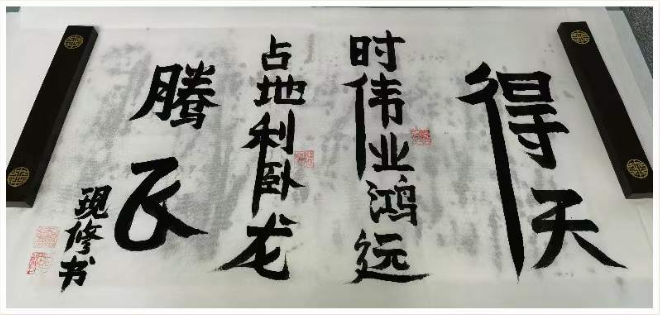 得天
时伟业鸿远
占地利卧龙
腾飞
现修书